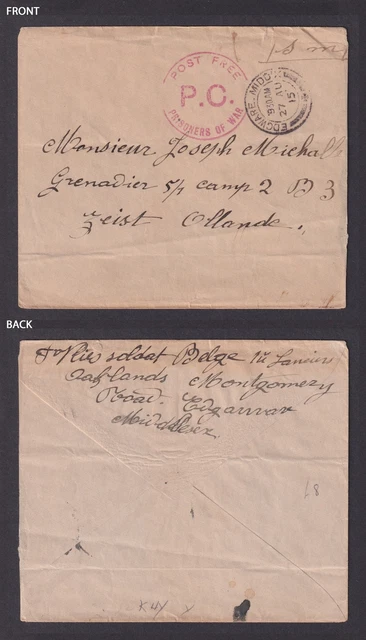 FRONT
POST FREE
P.C.
PRISONERS OF WAR
EDGWARE. MIDDX
9.30AM
27 AU
15
Monsieur Joseph
Grenadier 5/1 camp 2 B 3
Zeist Ollande.
BACK
soldat Belge 1er Lanciers
Oaklands Montgomery
Road. Edgarware
Middlesex.